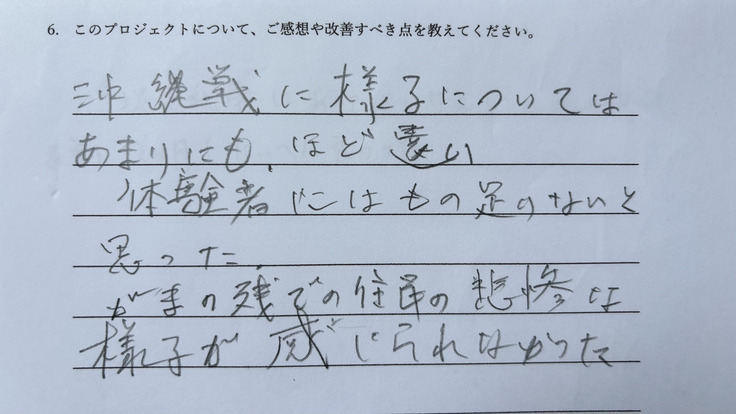 6. このプロジェクトについて、ご感想や改善すべき点を教えてください。
沖縄戦に様子については
あまりにも、ほど遠い
体験者にはもの足りないと
思った.
がまの残での住民の悲惨な
様子が感じられなかった